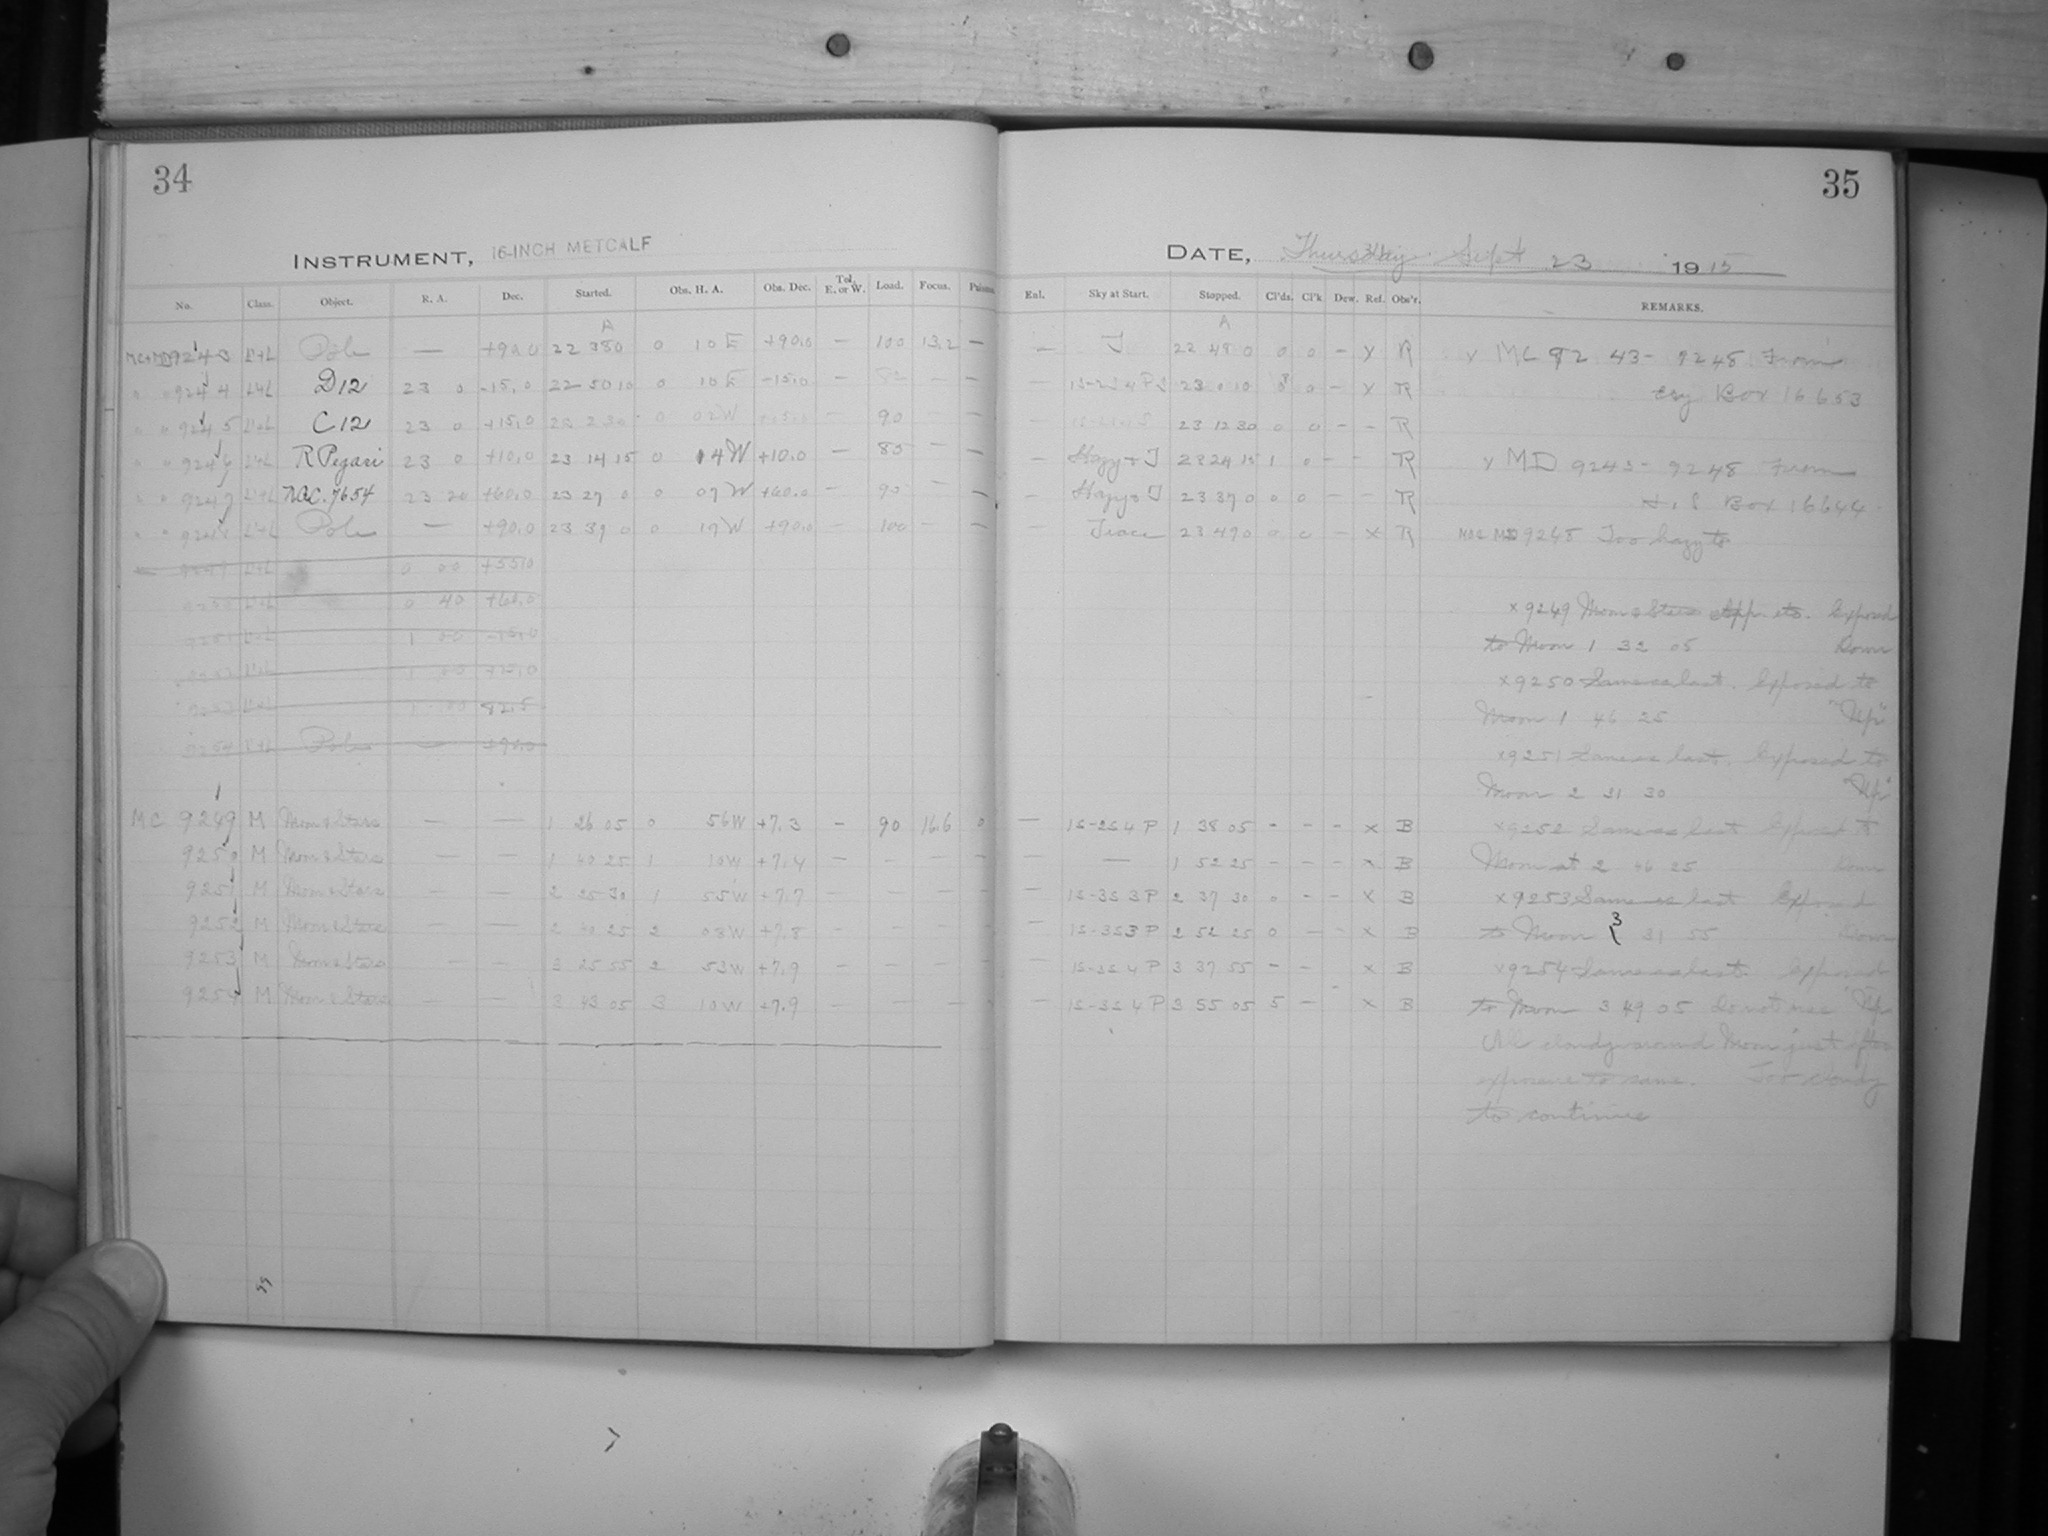 34
INSTRUMENT, 16-INCH METCALF
No. Class. Object. R. A. Dec. Started. Obs. H. A. Obs. Dec. Tel. E. or W. Load. Focus.
MC+MD 9243 L+L Pole — +90.0 22 38 0 0 10 E +90.0 — 100 13.2 —
" " 9244 L+L D12 23 0 -15.0 22 50 10 0 10 E -15.0 — — —
" " 9245 L+L C12 23 0 +15.0 0 02 W — 90
" " 9246 L+L R Pegasi 23 0 +10.0 23 14 15 0 14 W +10.0 — 85 — —
" " 9247 L+L N.G.C. 7654 23 20 +60.0 23 27 0 0 07 W +60.0 — 90 —
" " 9248 L+L Pole — +90.0 23 39 0 0 17 W +90.0 — 100 — —
9249 L+L 0 00 +55.0
L+L 0 40 +60.0
L+L 1 00 -15.0
L+L 1 00 +15.0
L+L 1 00 82.5
9254 L+L Pole — +90.0
MC 9249 M Moon & Stars — — 1 26 05 0 56 W +7.3 — 90 16.6 0
9250 M Moon & Stars — — 1 40 25 1 10 W +7.4 — — — —
9251 M Moon & Stars — — 2 25 30 1 55 W +7.7 — — — —
9252 M Moon & Stars — — 2 40 25 2 08 W +7.8 — — — —
9253 M Moon & Stars — — 3 25 55 2 53 W +7.9 — — — —
9254 M Moon & Stars — — 3 43 05 3 10 W +7.9 — — — —
35
DATE, Thursday Sept 23 1915
Enl. Sky at Start. Stopped. Cl'ds. Cl'k Dew. Ref. Obs'r. REMARKS.
— J 22 48 0 0 0 — x R x MC 9243 - 9248 From
— 1S-2S4PS 23 0 10 0 0 — x R Box 16653
— 23 12 30 0 0 — — R
— Hazy + J 23 24 15 1 0 — — R x MD 9243 - 9248 From
— Hazy & J 23 37 0 0 0 — — R Box 16644
— Trace 23 49 0 0 0 — x R MC & MD 9248 Too hazy to
x 9249 Moon & Stars App. etc. Exposed
to Moon 1 32 05 Down
x 9250 Same as last. Exposed to
Moon 1 46 25 "Up"
x 9251 Same as last. Exposed to
Moon 2 31 30 "Up"
— 1S-2S4P 1 38 05 — — — x B x 9252 Same as last Exposed to
— — 1 52 25 — — — x B Moon at 2 46 25 Down
— 1S-3S3P 2 37 30 0 — — x B x 9253 Same as last Exposed
— 1S-3S3P 2 52 25 0 — — x B to Moon 3 31 55 Down
— 1S-3S4P 3 37 55 — — x B x 9254 Same as last Exposed
— 1S-3S4P 3 55 05 5 — x B to Moon 3 49 05 do not use "Up"
All cloudy around Moon just after
exposure to same. Too cloudy
to continue